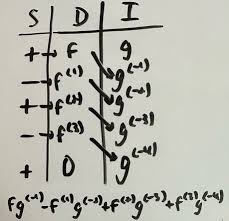 S D I
+ f g
− f⁽¹⁾ g⁽⁻¹⁾
+ f⁽²⁾ g⁽⁻²⁾
− f⁽³⁾ g⁽⁻³⁾
+ 0 g⁽⁻⁴⁾
fg⁽⁻¹⁾−f⁽¹⁾g⁽⁻²⁾+f⁽²⁾g⁽⁻³⁾+f⁽³⁾g⁽⁻⁴⁾